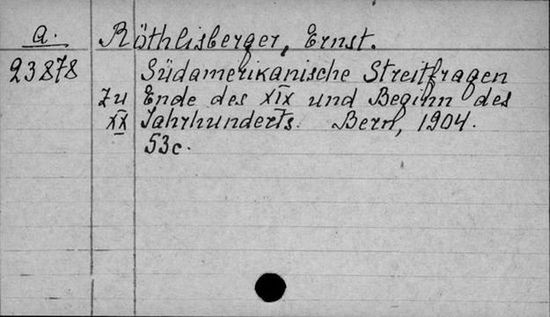 a. Röthlisberger, Ernst.
23878 Südamerikanische Streitfragen
zu Ende des XIX und Beginn des
XX Jahrhunderts. Bern, 1904.
53c.